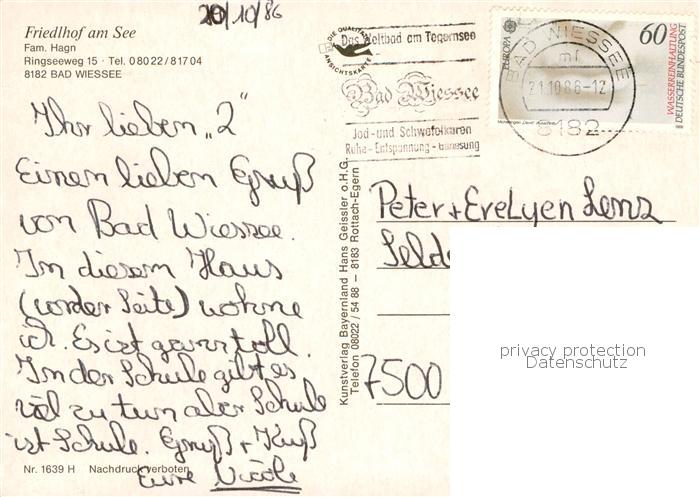 20/10/86
Friedlhof am See
Fam. Hagn
Ringseeweg 15 · Tel. 08022/81704
8182 BAD WIESSEE
Ihr lieben „2"
Einen lieben Gruß
von Bad Wiessee.
In diesem Haus
(vorder Seite) wohne
ich. Es ist ganz toll.
In der Schule gibt es
viel zu tun aber Schule
ist Schule. Gruß + Kuß
Eure Nicole
Nr. 1639 H Nachdruck verboten
Kunstverlag Bayernland Hans Geissler o.H.G.
Telefon 08022 / 54 88 – 8183 Rottach-Egern
DIE QUALITÄTS
ANSICHTSKARTE
Das Weltbad am Tegernsee
Bad Wiessee
Jod- und Schwefelkuren
Ruhe - Entspannung - Genesung
BAD WIESSEE
mf
21.10.86-12
8182
EUROPA
60
WASSERREINHALTUNG
DEUTSCHE BUNDESPOST
Peter + Evelyen Lenz
7500
privacy protection
Datenschutz